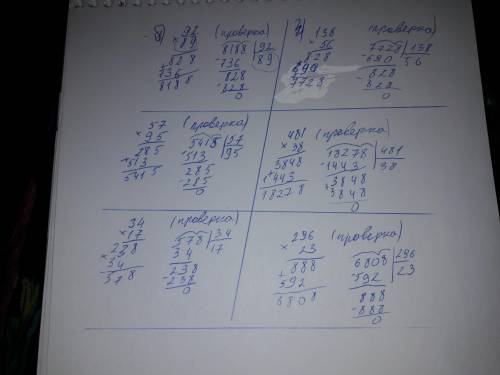 б) 92 (проверка)
× 89
828
+ 736
8188
8188 | 92
- 736 | 89
828
- 828
0
г) 138 (проверка)
× 56
828
+ 690
7728
7728 | 138
- 690 | 56
828
- 828
0
57 (проверка)
× 95
285
+ 513
5415
5415 | 57
- 513 | 95
285
- 285
0
481 (проверка)
× 38
3848
+ 1443
18278
18278 | 481
- 1443 | 38
3848
- 3848
0
34 (проверка)
× 17
238
+ 34
578
578 | 34
34 | 17
238
- 238
0
296 (проверка)
× 23
888
+ 592
6808
6808 | 296
- 592 | 23
888
- 888
0